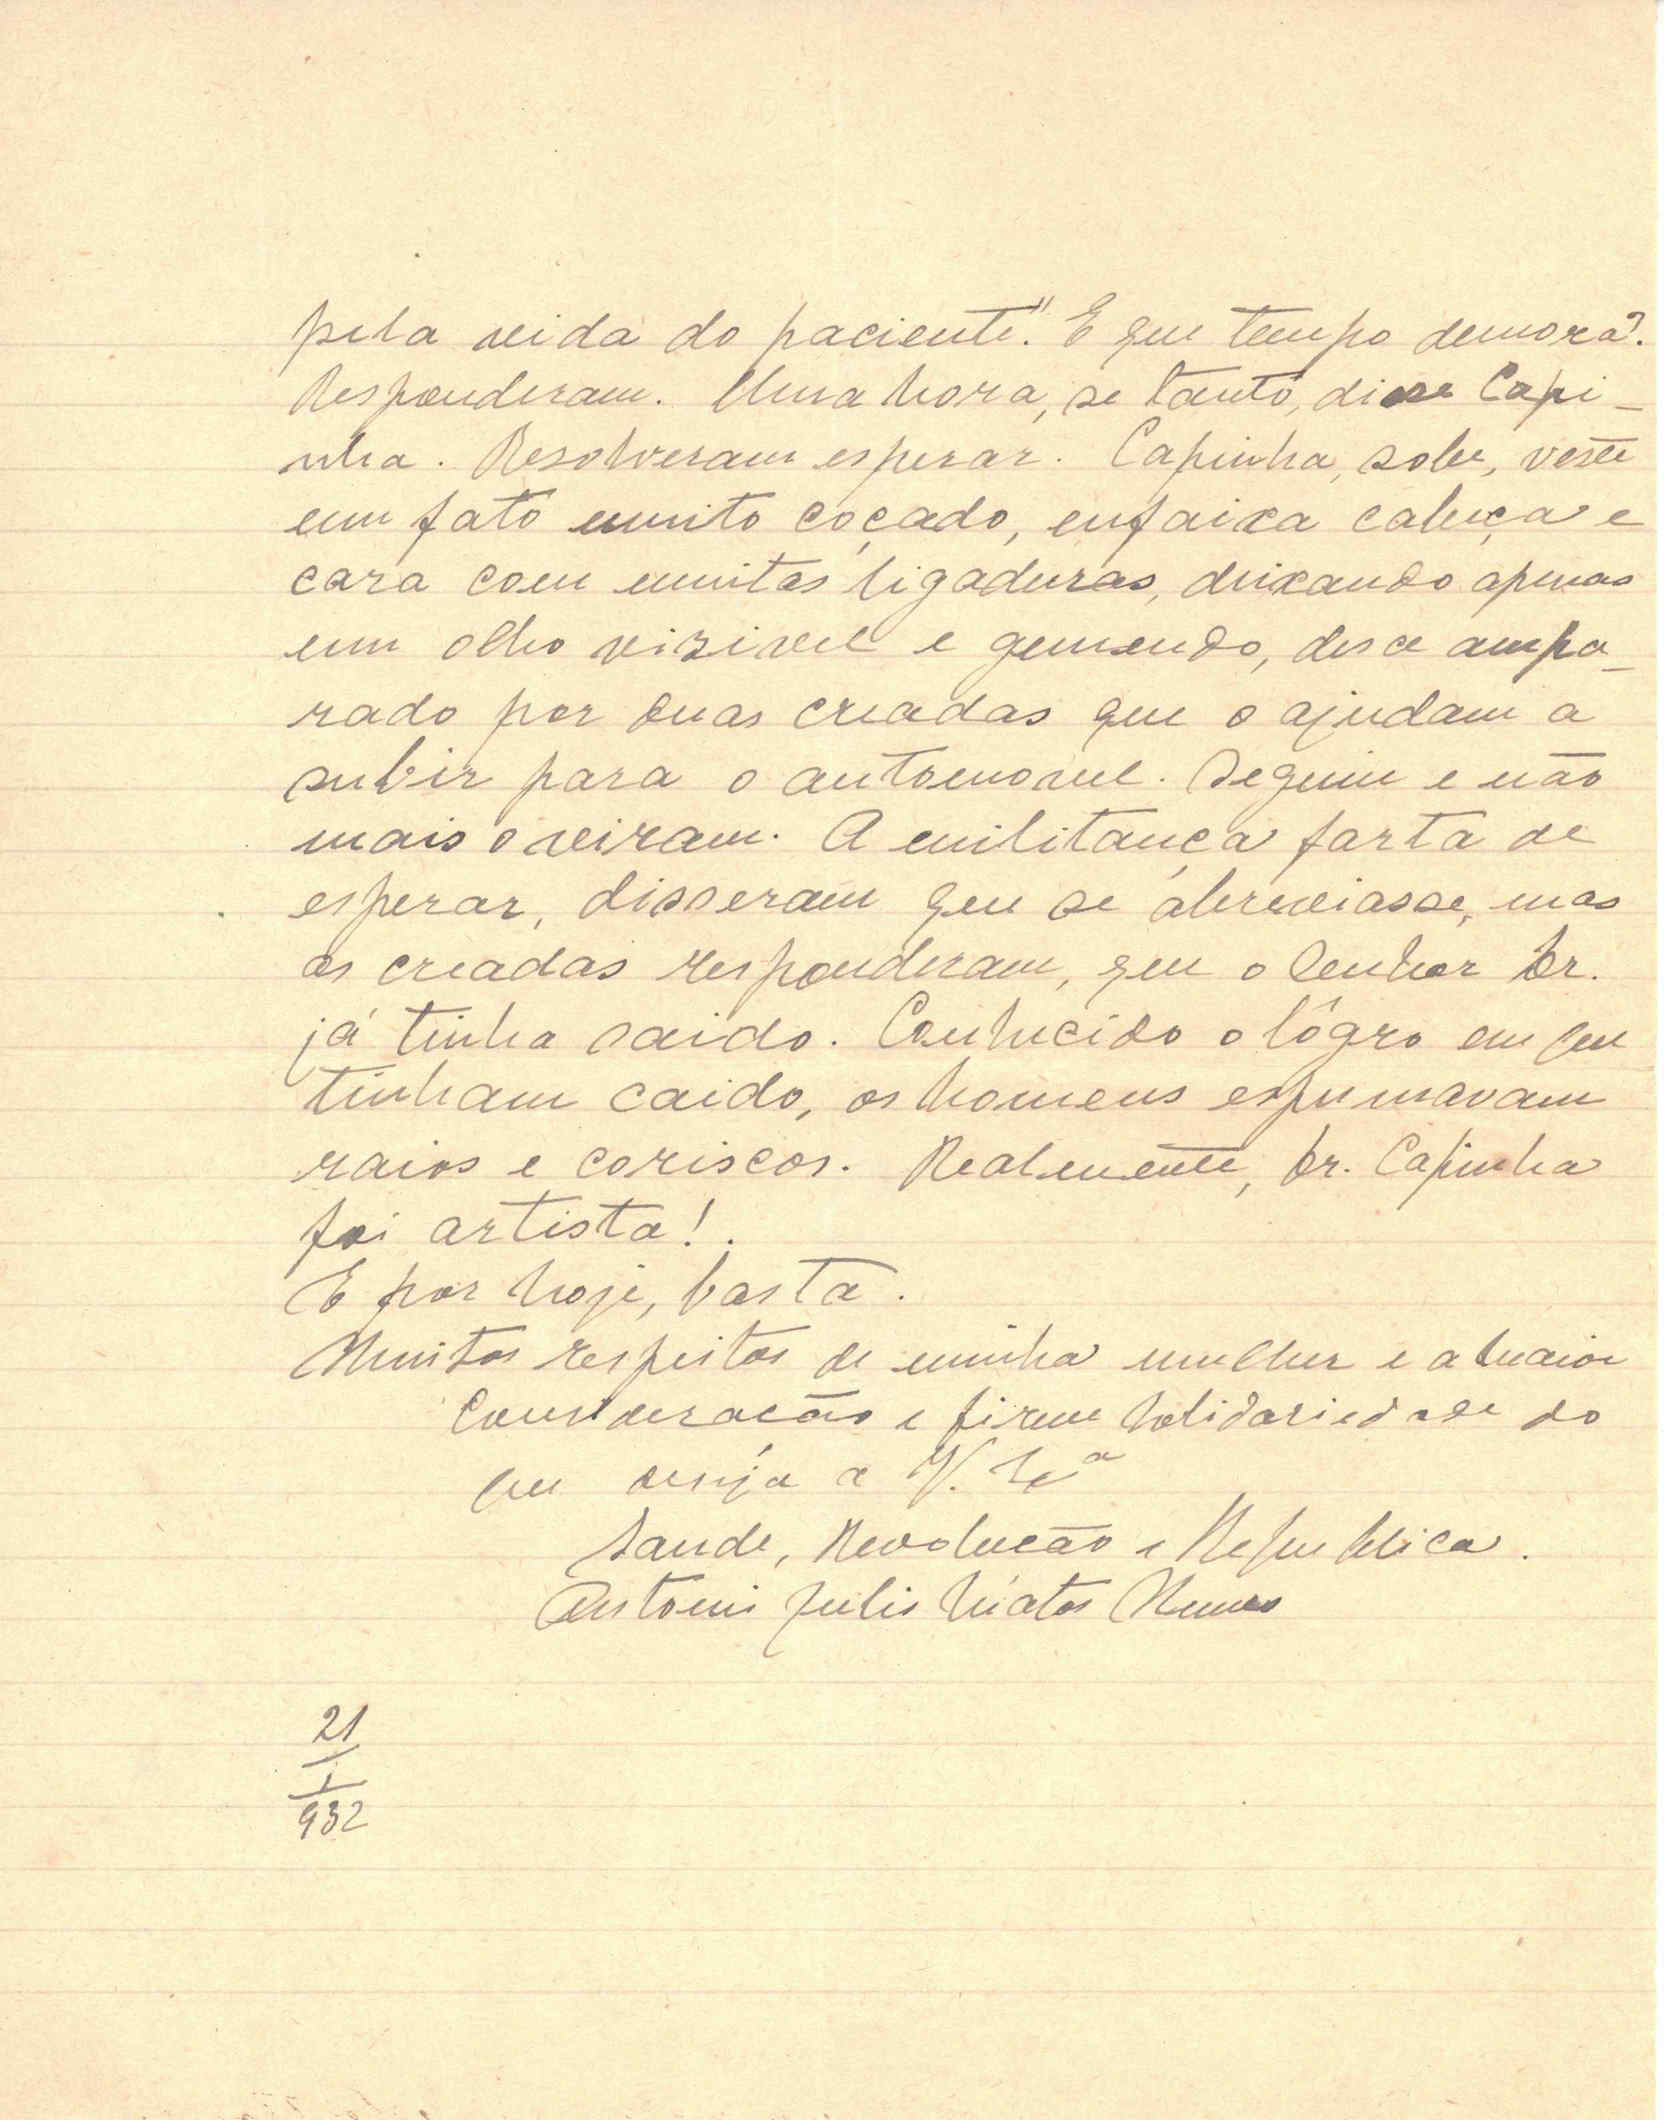 pela vida do paciente". E que tempo demora?
Responderam. Uma hora, se tanto, disse Capi-
nha. Resolveram esperar. Capinha, sobe, veste
um fato muito coçado, enfaixa cabeça e
cara com muitas ligaduras, deixando apenas
um olho visivel e gemendo, desce ampa-
rado por duas creadas que o ajudam a
subir para o automovel. Seguiu e não
mais o viram. A militança farta de
esperar, disseram que se abreviasse, mas
as creadas responderam, que o Senhor Dr.
já tinha saido. Conhecido o lôgro em que
tinham caido, os homens espumavam
raios e coriscos. Realmente, Dr. Capinha
foi artista!.
E por hoje, basta.
Muitos respeitos de minha mulher e a maior
consideração e firme solidariedade do
que deseja a V. Exª
Saude, Revolução e Republica.
Antonio Julio Matos Nunes
21
1
932